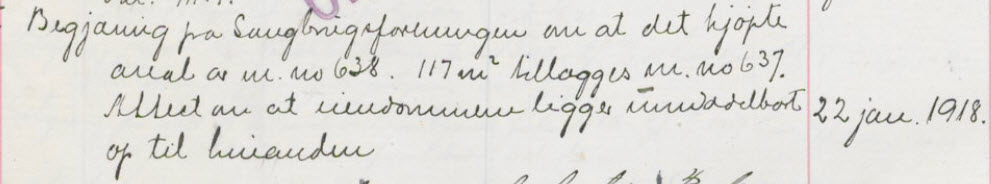 Begjæring fra Laugbrugsforeningen om at det kjøpte
areal av m. no 638. 117 m² tillægges m. no 637.
Attest om at eiendommene ligger umiddelbart 22 jan. 1918.
op til hinanden